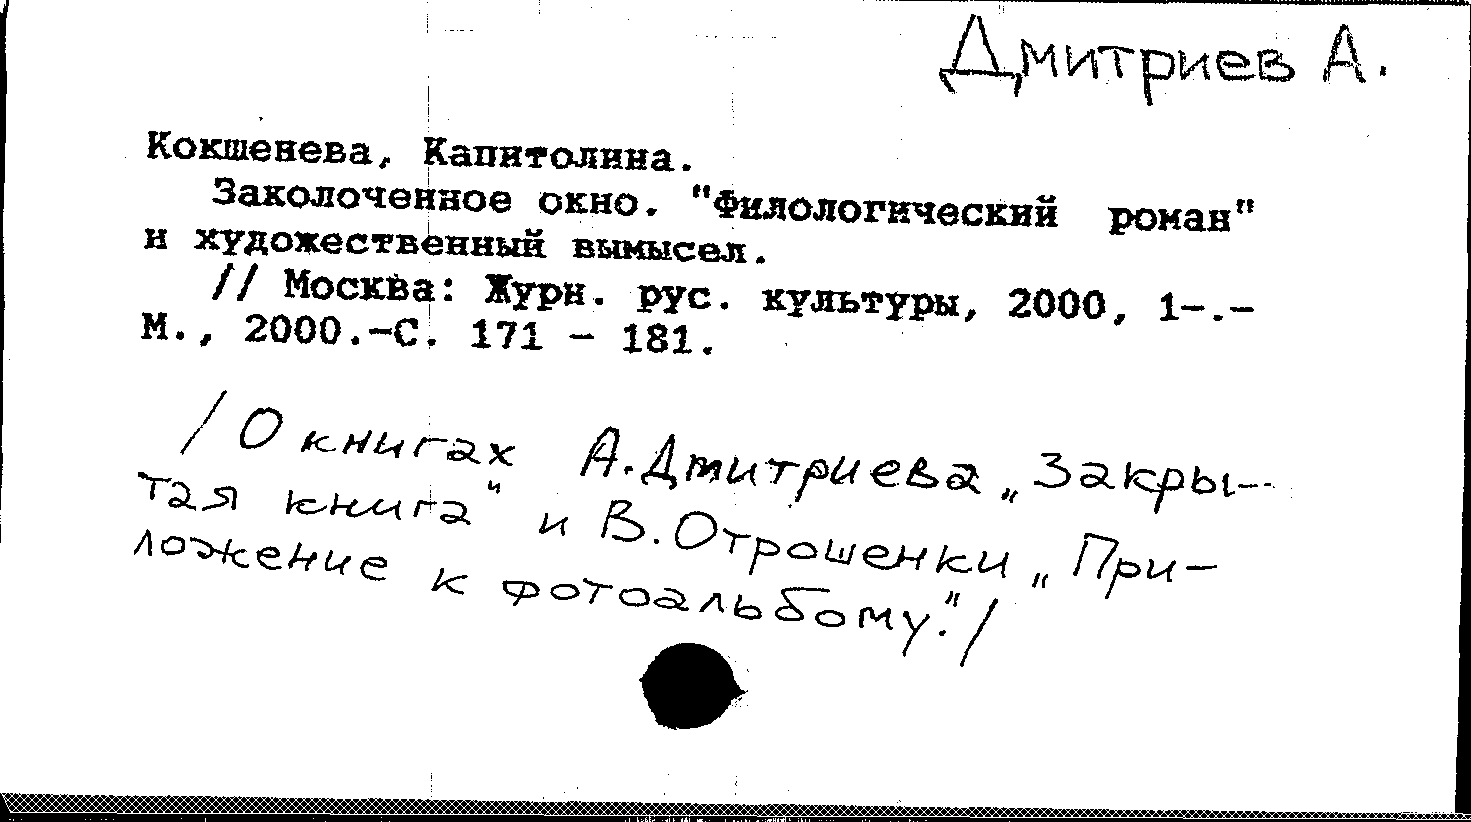 Дмитриев А.
Кокшенева, Капитолина.
Заколоченное окно. "Филологический роман"
и художественный вымысел.
// Москва: Журн. рус. культуры, 2000, 1-.-
М., 2000.-С. 171 - 181.
/О книгах А.Дмитриева „Закры-
тая книга" и В.Отрошенки „При-
ложение к фотоальбому."/